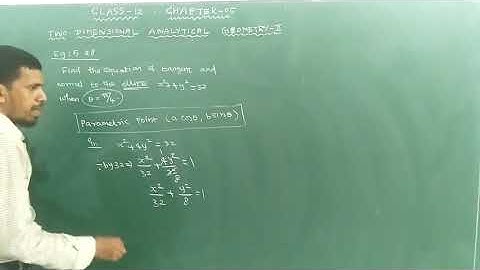 CLASS-12 CHAPTER-05
TWO DIMENSIONAL ANALYTICAL GEOMETRY-II
Eg: 5.28
Find the equation of tangent and
normal to the ellipse x²+4y²=32
when θ=π/4
Parametric point (a cosθ, b sinθ)
x²+4y²=32
÷ by 32 ⇒ x²/32 + 4y²/32 = 1
8
x²/32 + y²/8 = 1